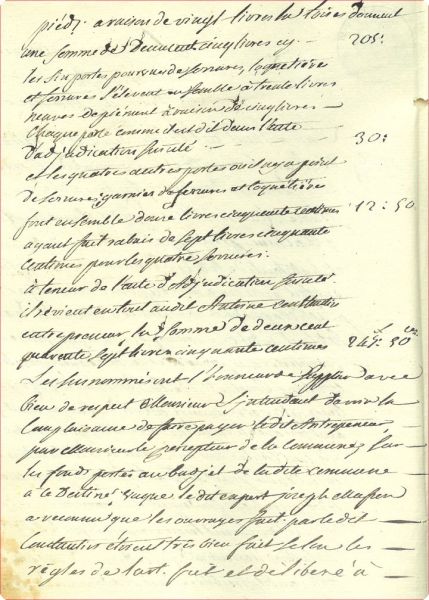 pieds. a raison de vingt livres la toise donnent
une somme de Deuxcent cinq livres cy - 205:
les six portes pourvues de serrures, loquetière
et ferrures s'élevent ensemble à trente livres
neuves de piémont à raison de cinq livres -
chaque porte comme c'est dit dans l'acte
d'adjudication susdité - 30:
et les quatres autres portes où il n'y a point
de serrures garnies de ferrures et loquétière
font ensemble douze livres cinquante centimes 12:50
ayant fait rabais de sept livres cinquante
centimes pour les quatre serrures.
à teneur de l'acte d'adjudication susdité
il revient en tout audit Antoine Constantin
entrepreneur la somme de deux cent
quarante sept livres cinquante centimes 247: 50
Les susnommés ont l'honneur de avec
bien de respect Monsieur l'intendant d'avoir la
Complaisance de faire payer le dit Antrepeneur
par Monsieur le percepteur de la Commune sur
les fonds portés au budjet de la dite commune
à le Destiné vuque le dit expert joseph
a reconnu que les ouvrages fait par le dit
Constantin étoient très bien fait selon les
règles de l'art. fait et délibéré à